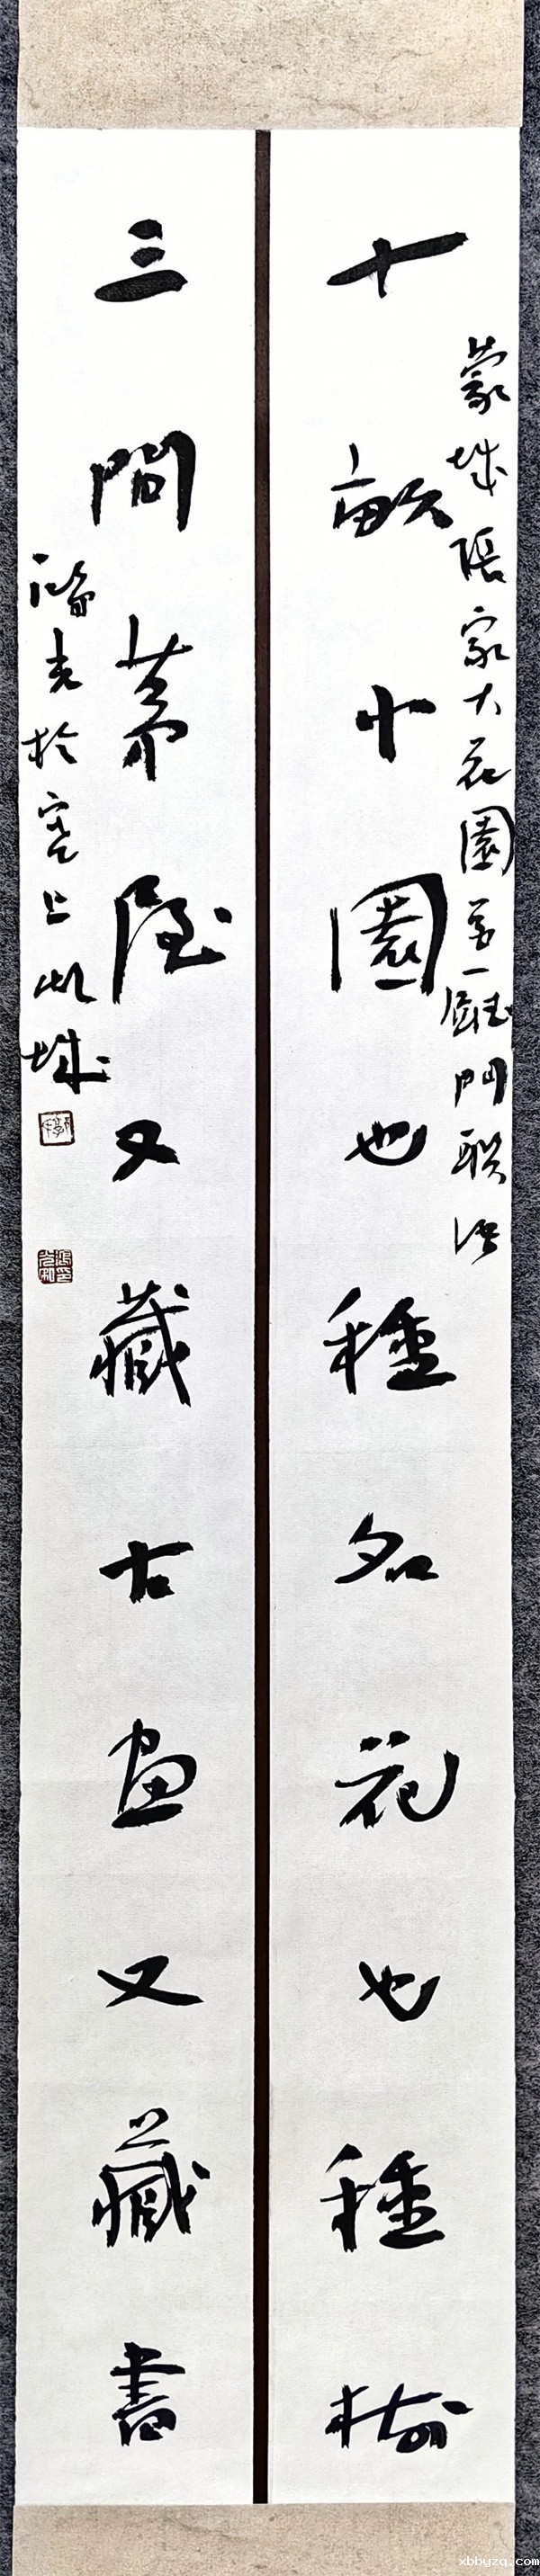 十畝小園也種名花也種樹
蒙城張家大花園第一廳門聯語
三間茅屋又藏古畫又藏書
於寞上 城
xbbyzq.com